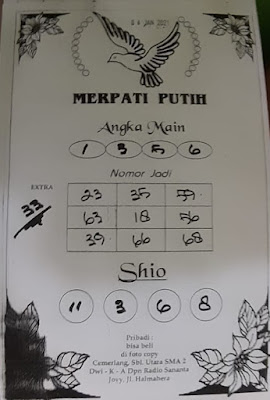 MERPATI PUTIH
Angka Main
1 3 5 6
Nomor Jadi
EXTRA
33
23 35 59
63 18 56
39 66 68
Shio
11 3 6 8
Pribadi :
bisa beli
di foto copy
Cemerlang, Sbl. Utara SMA 2
Dwi - K - A Dpn Radio Sananta
Joyy. Jl. Halmahera